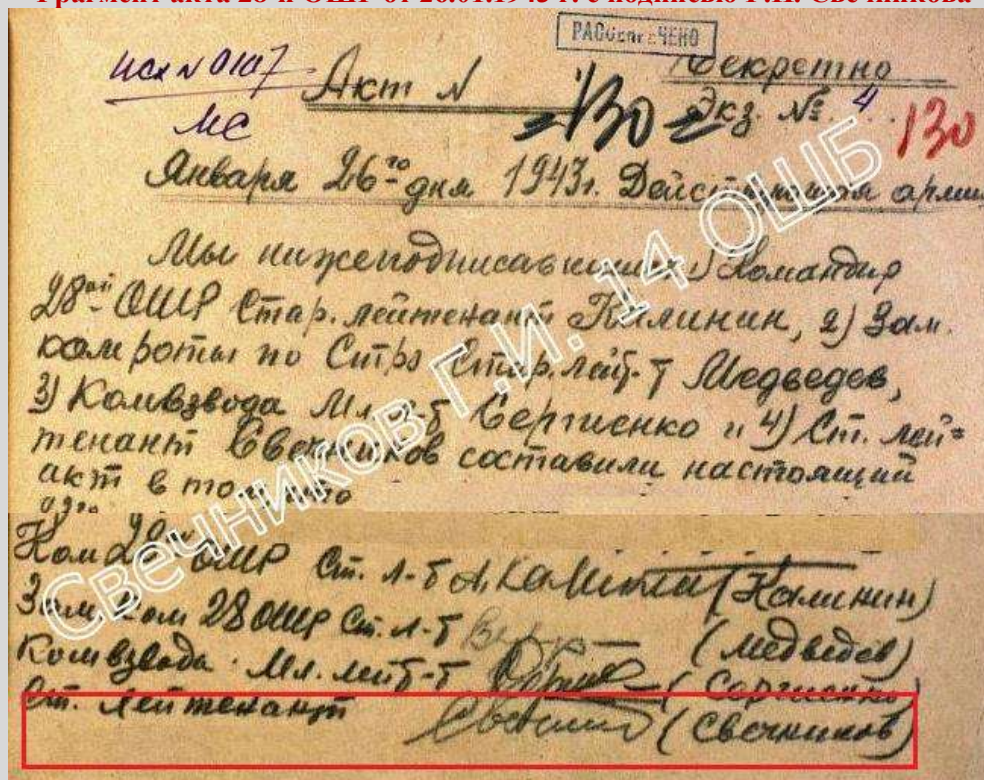 Фрагмент акта 28-й ОШР от 26.01.1943 г. с подписью Г.И. Свечникова
РАССЕКРЕЧЕНО
исх N 0107
Акт N
Секретно
МС
130
Экз. №. 4
130
Января 26го дня 1943г. Действующая армия
Мы нижеподписавшиеся 1) Командир
28ой ОШР Стар. лейтенант Калинин, 2) Зам.
ком роты по Стр. Стар. лейт-т Медведев,
3) Комвзвода Мл. л-т Сергиенко и 4) Ст. лей=
тенант Свечников составили настоящий
акт в том что
Свечников Г.И. 14 ОШБ
Ком 28й ОШР Ст. л-т (Калинин)
Зам. Ком 28 ОШР Ст. л-т (Медведев)
Комвзвода Мл. лейт-т (Сергиенко)
Ст. лейтенант (Свечников)